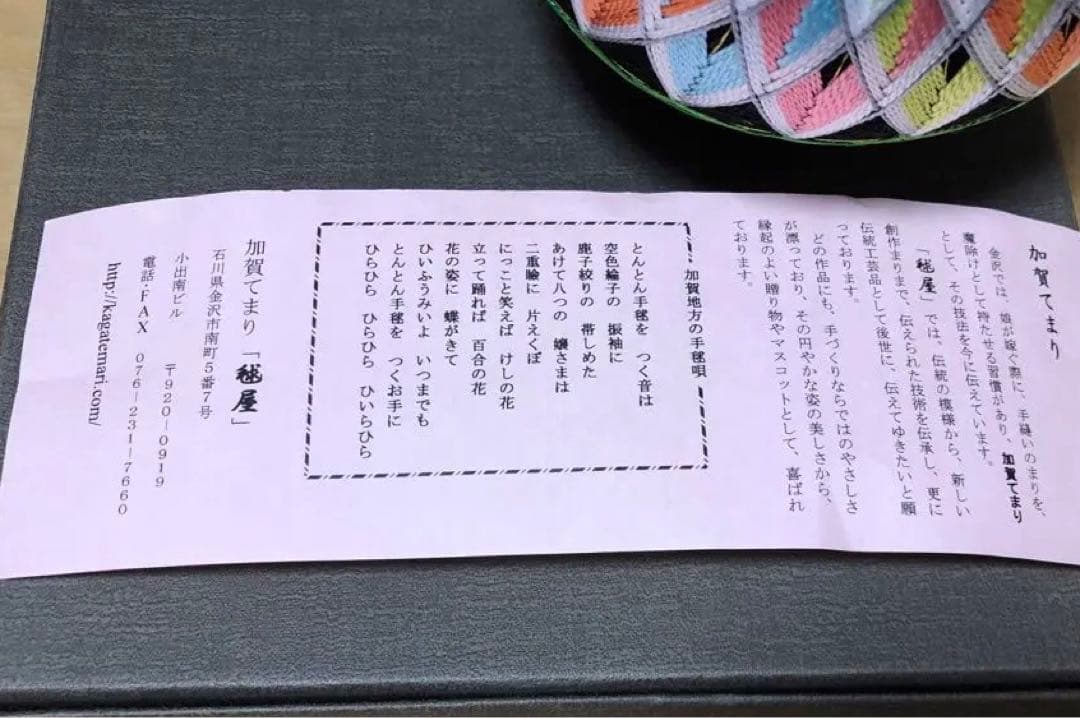 加賀てまり
金沢では、娘が嫁ぐ際に、手縫いのまりを、
魔除けとして持たせる習慣があり、加賀てまり
として、その技法を今に伝えています。
「毬屋」では、伝統の模様から、新しい
創作まりまで、伝えられた技術を伝承し、更に
伝統工芸品として後世に、伝えてゆきたいと願
っております。
どの作品にも、手づくりならではのやさしさ
が漂っており、その円やかな姿の美しさから、
縁起のよい贈り物やマスコットとして、喜ばれ
ております。
加賀地方の手毬唄
とんとん手毬を つく音は
空色綸子の 振袖に
鹿子絞りの 帯しめた
あけて八つの 嬢さまは
二重瞼に 片えくぼ
にっこと笑えば けしの花
立って踊れば 百合の花
花の姿に 蝶がきて
ひいふうみいよ いつまでも
とんとん手毬を つくお手に
ひらひら ひらひら ひいらひら
加賀てまり「毬屋」
石川県金沢市南町5番7号
小出南ビル 〒920-0919
電話・FAX 076-231-7660
http://kagatemari.com/